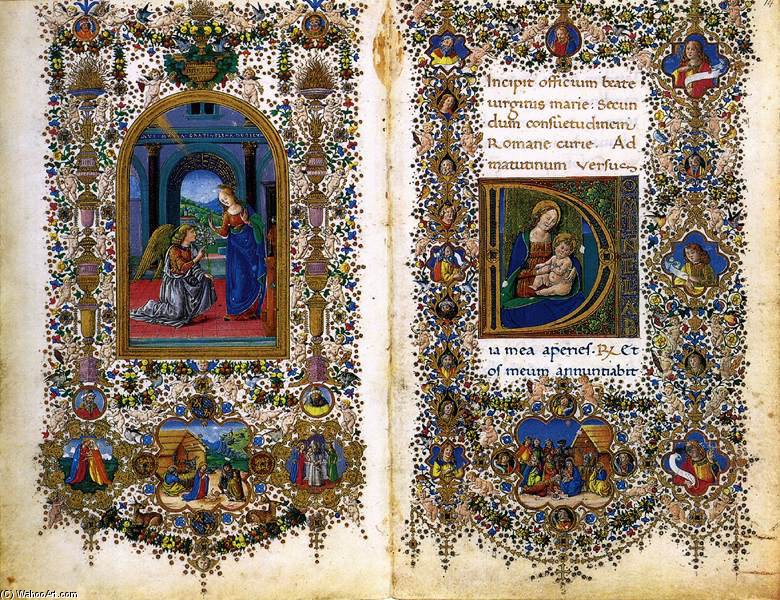 AVE MARIA GRATIA PLENA
14
Incipit officium beate
uirginis marie. Secun
dum consuetudinem
Romane curie. Ad
matutinum versus
D
OMINE LAB
ia mea aperies. R Et
os meum annuntiabit
(C) WahooArt.com